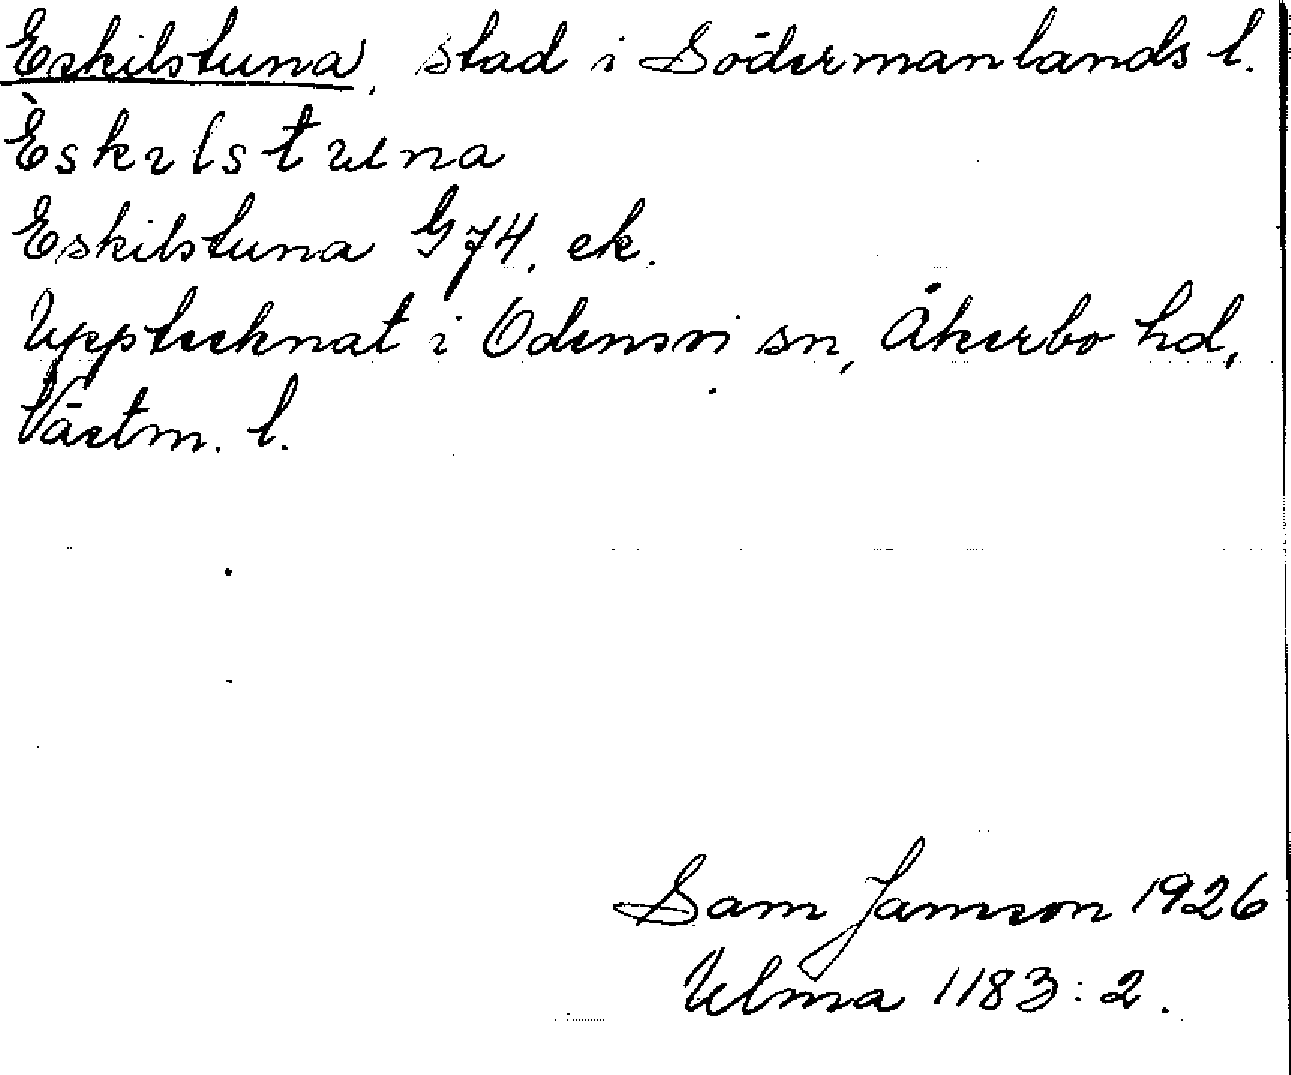 Eskilstuna, stad i Södermanlands l.
Èskılstuna
Eskilstuna G74, ek.
Upptecknat i Odensvi sn, Åkerbo hd,
Västm. l.
Sam Jansson 1926
Ulma 1183:2.